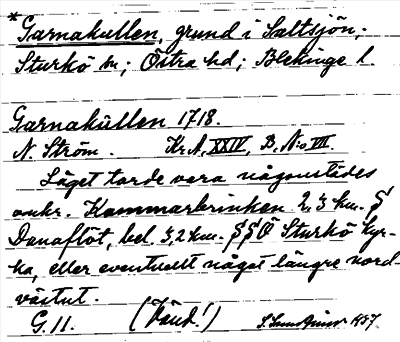 *Garnakullen, grund i Saltsjön;
Sturkö sn; Östra hd; Blekinge l.
Garnakullen 1718.
N. Ström. Kr.A, XXIV, B, N:o VII.
Läget torde vara någonstädes
omkr. Kammarbrinken 2,3 km. S
Danaflöt, bel. 3,2 km. SSÖ Sturkö kyr-
ka, eller eventuellt något längre nord-
västut.
G. 11. (Vänd!) 1937